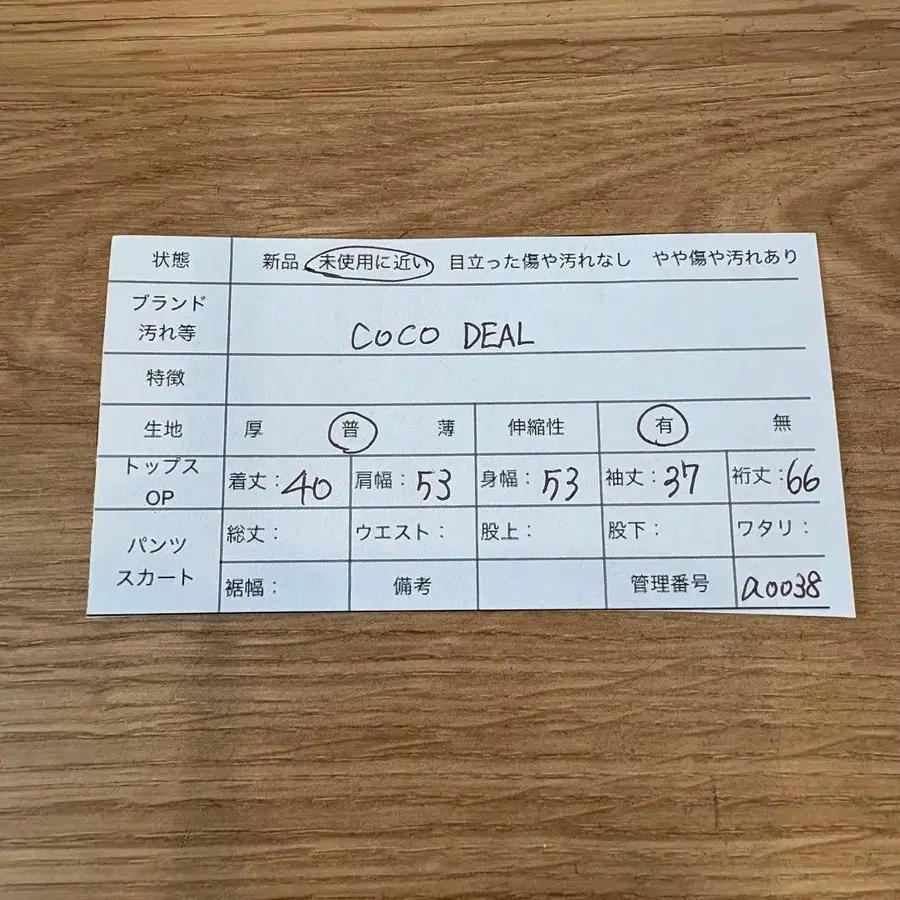 状態 新品 未使用に近い 目立った傷や汚れなし やや傷や汚れあり
ブランド
汚れ等 COCO DEAL
特徴
生地 厚 普 薄 伸縮性 有 無
トップス
OP 着丈:40 肩幅:53 身幅:53 袖丈:37 裄丈:66
パンツ
スカート 総丈: ウエスト: 股上: 股下: ワタリ:
裾幅: 備考 管理番号 a0038